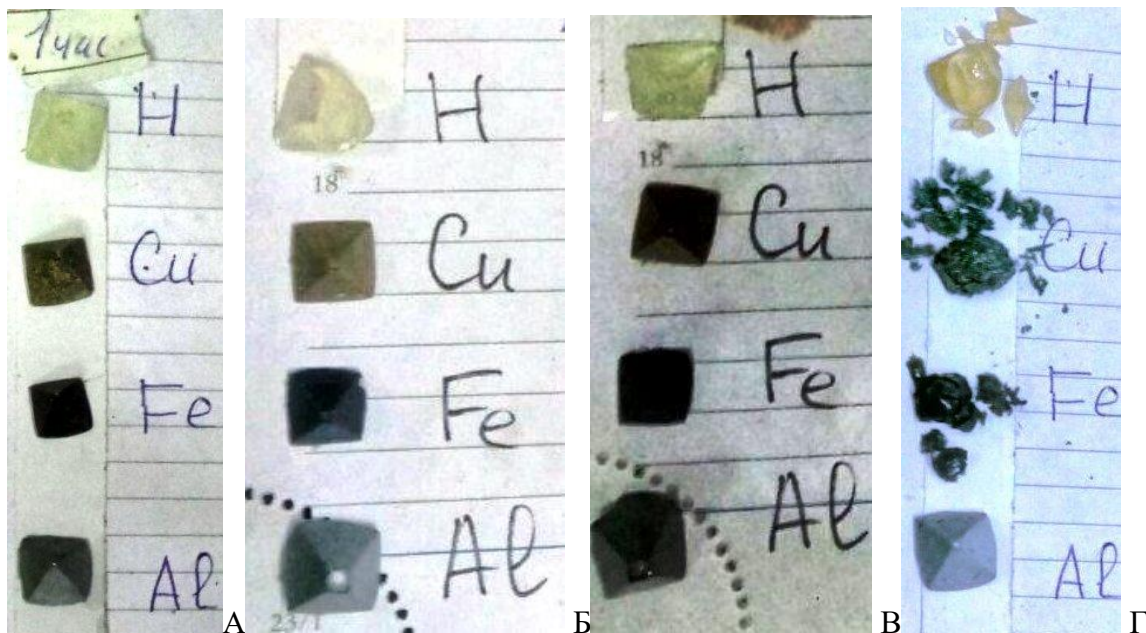 1 час
H
Cu
Fe
Al
А
H
18
Cu
Fe
Al
23/1
Б
H
18
Cu
Fe
Al
В
H
Cu
Fe
Al
Г